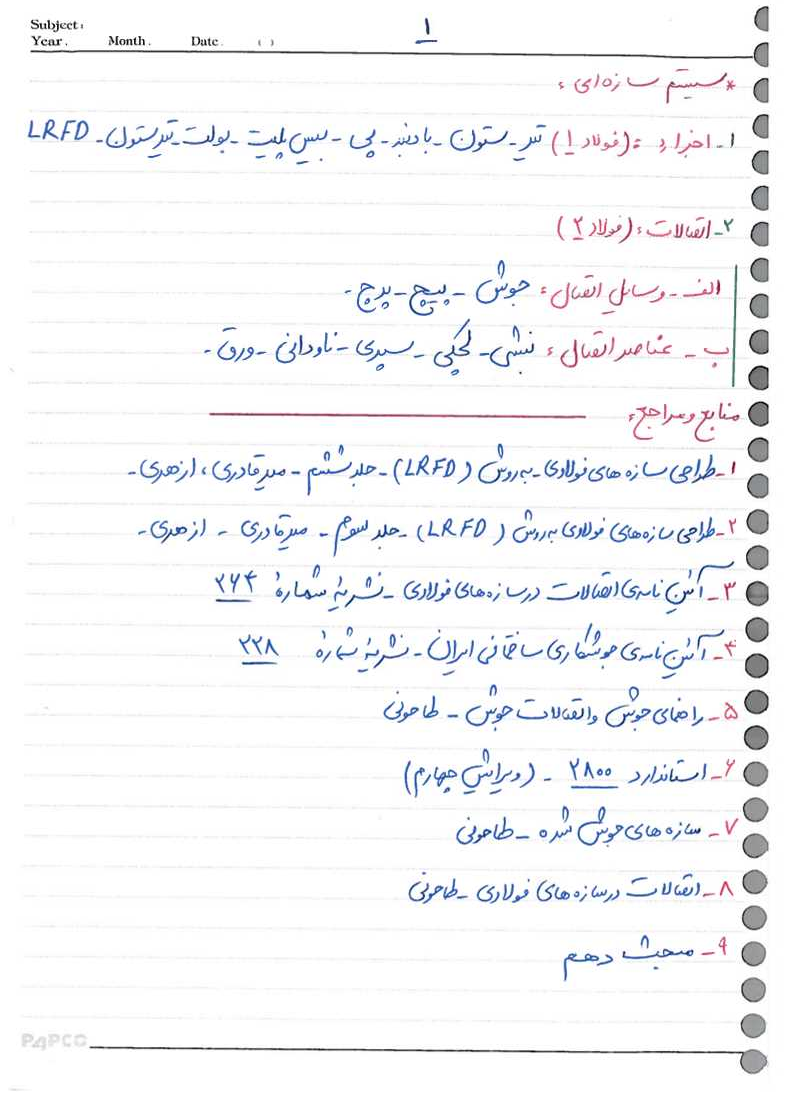 Subject:
Year. Month. Date. ( )
۱
* سیستم سازه‌ای:
۱- اجزاء: (فولاد ۱) تیر - ستون - بادبند - پی - بیس پلیت - بولت - تیرستون - LRFD
۲- اتصالات: (فولاد ۲)
الف - وسایل اتصال: جوش - پیچ - پرچ.
ب - عناصر اتصال: نبشی - لچکی - سپری - ناودانی - ورق.
منابع و مراجع:
۱- طراحی سازه های فولادی - به روش (LRFD) - جلد ششم - میرقادری، ازهری.
۲- طراحی سازه‌های فولادی به روش (LRFD) - جلد سوم - میرقادری - ازهری.
۳- آئین نامه‌ی اتصالات در سازه های فولادی - نشریهٔ شمارهٔ ۲۶۴
۴- آئین نامه‌ی جوشکاری ساختمانی ایران - نشریهٔ شمارهٔ ۲۲۸
۵- راهنمای جوش و اتصالات جوش - طاحونی
۶- استاندارد ۲۸۰۰ - (ویرایش چهارم)
۷- سازه های جوش شده - طاحونی
۸- اتصالات در سازه های فولادی - طاحونی
۹- مبحث دهم
PAPCO